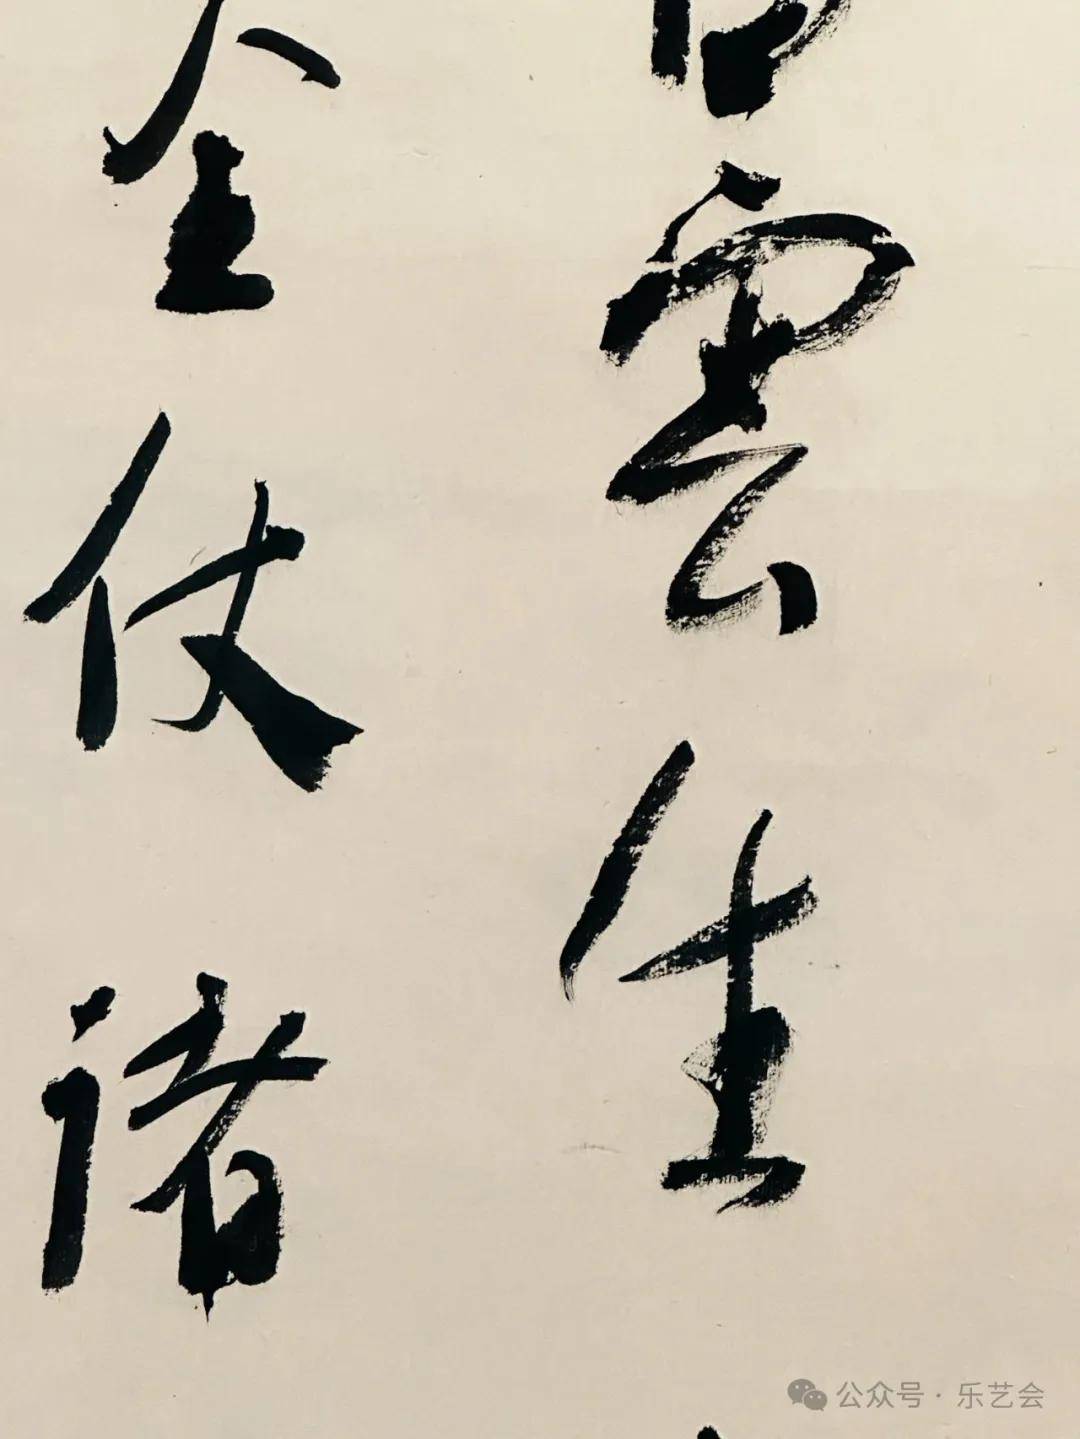 雲生
全仗諸
公众号·乐艺会